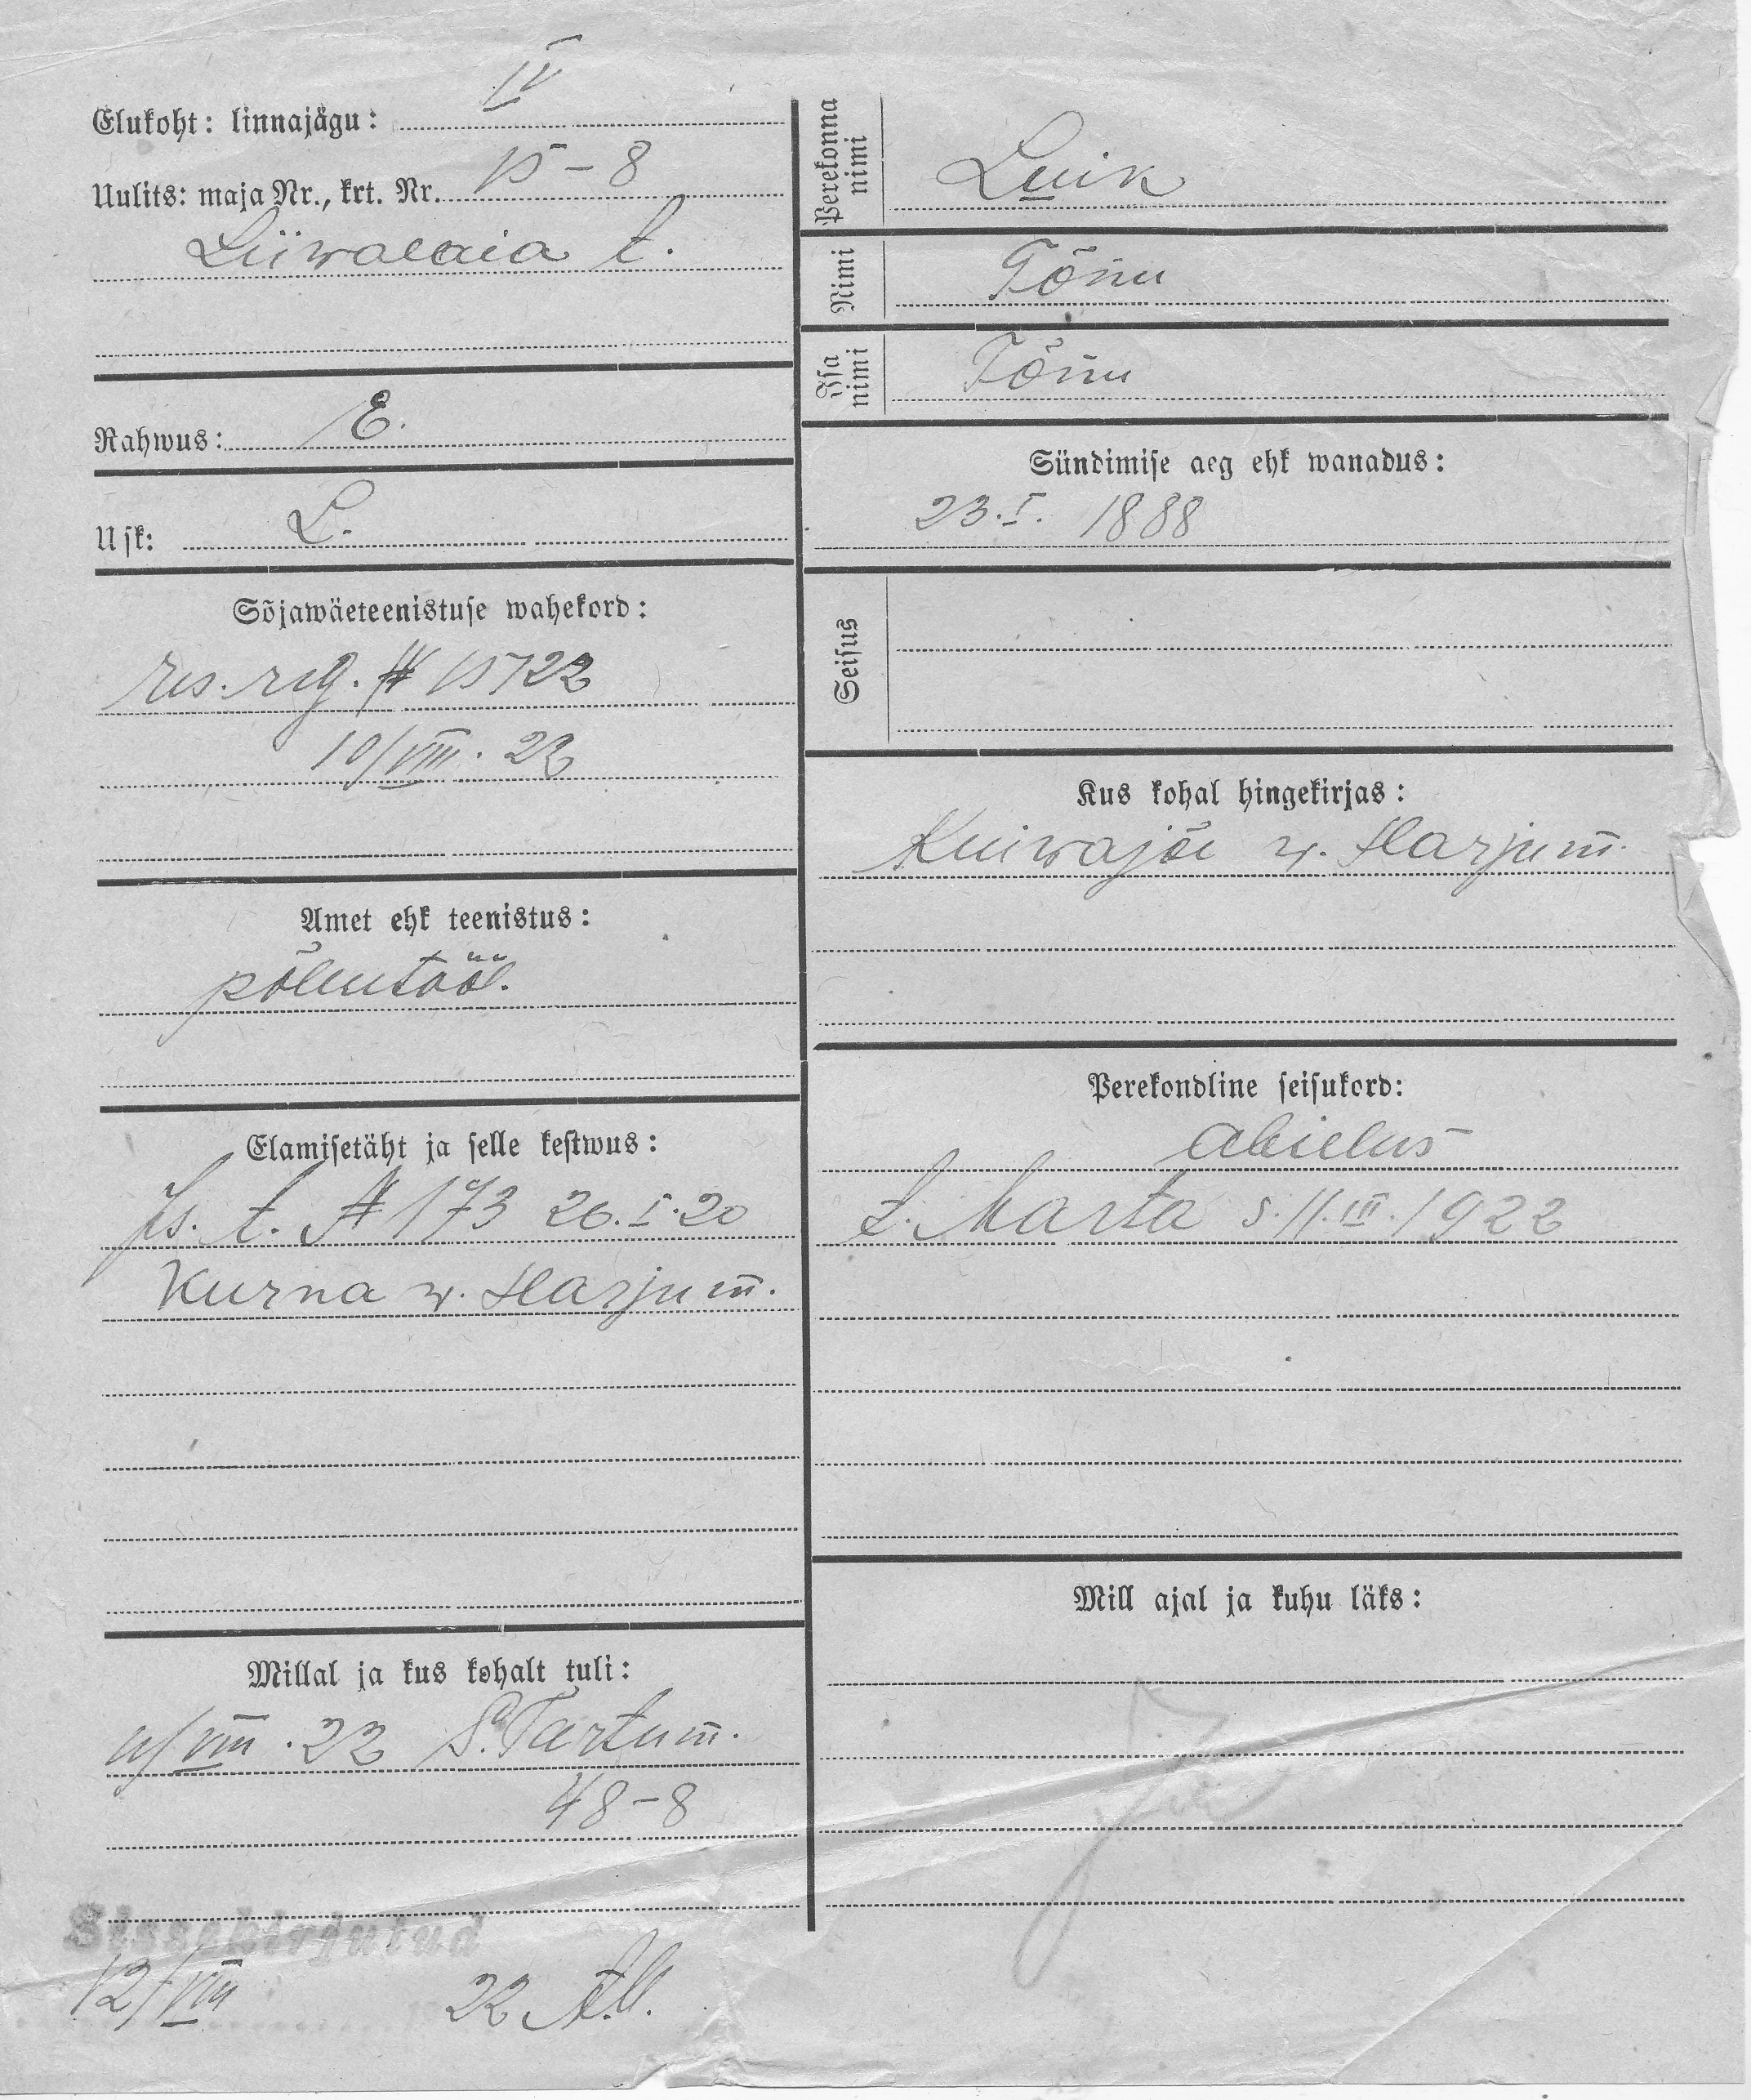 IV
Elukoht: linnajägu:
15-8
Uulits: maja Nr., krt. Nr.
Liiwalaia t.
Rahwus: E.
Usk: L.
Sõjawäeteenistuse wahekord:
res. reg. # 15722
10/VIII. 22
Amet ehk teenistus:
põllutööl.
Elamisetäht ja selle kestwus:
Is. t. # 173 26.I.20
Kurna w. Harjum.
Millal ja kus kohalt tuli:
VIII. 22 S. Tartu m.
48-8
Sissekirjutud
12/VIII 22
Perekonna nimi Luik
Nimi Tõnu
Isa nimi Tõnu
Sündimise aeg ehk wanadus:
23.I. 1888
Seisus
Kus kohal hingekirjas:
Kuiwajõe w. Harjum.
Perekondline seisukord:
abielus
t. Marta s. 11.III.1922
Mill ajal ja kuhu läks: